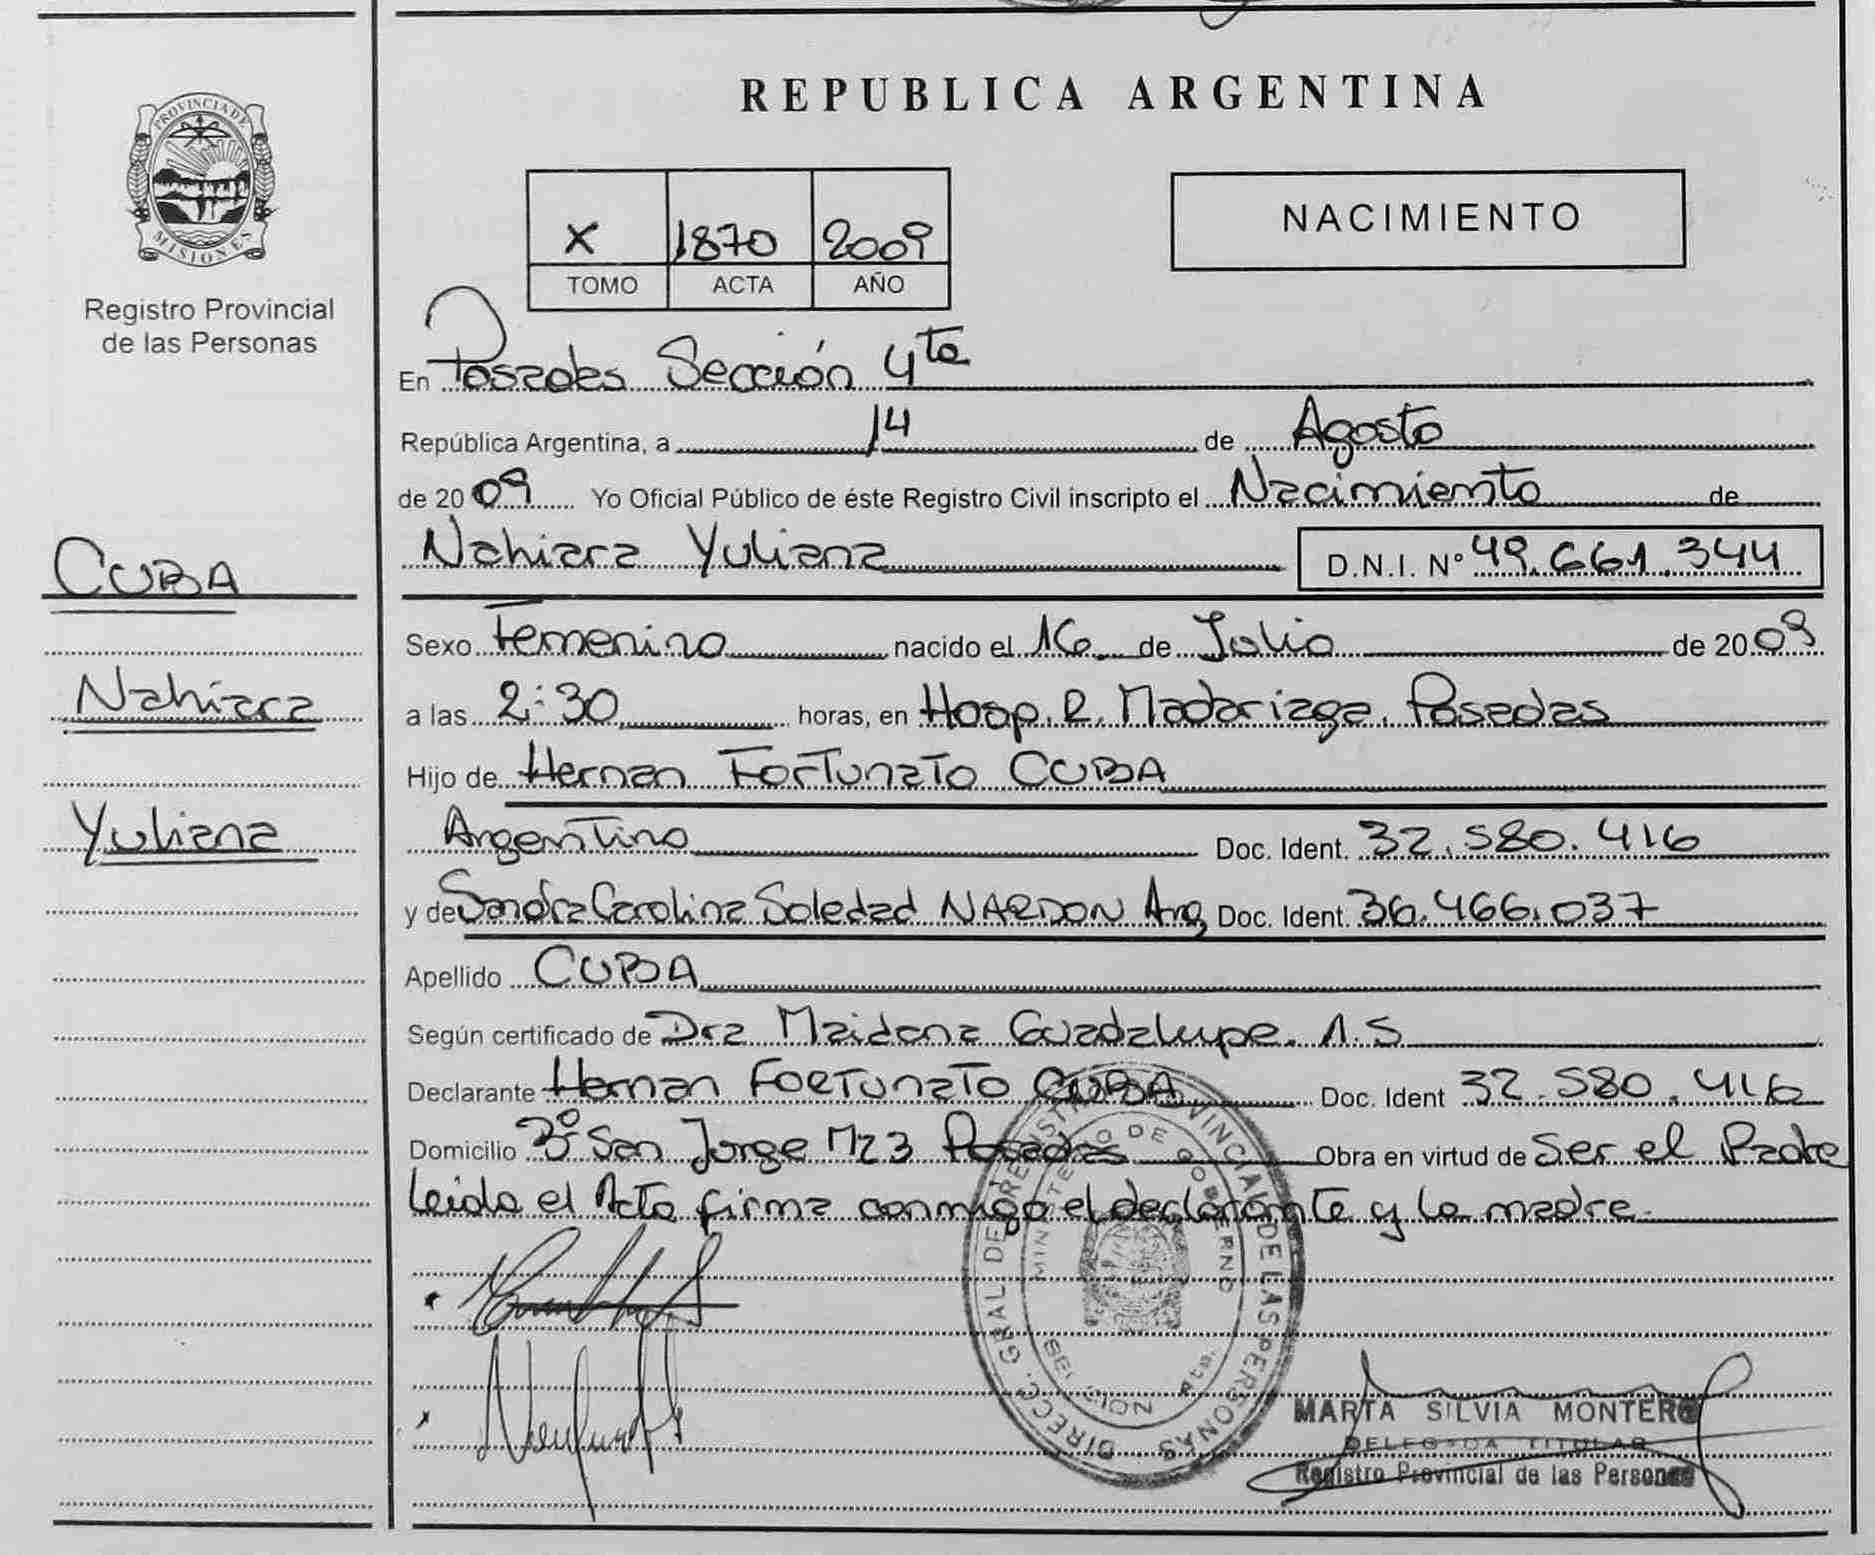 REPUBLICA ARGENTINA
PROVINCIA DE
MISIONES
Registro Provincial
de las Personas
X 1870 2009
TOMO ACTA AÑO
NACIMIENTO
En Posadas Sección 4ta
República Argentina, a 14 de Agosto
de 2009 Yo Oficial Público de éste Registro Civil inscripto el Nacimiento de
Nahiara Yuliana D.N.I. Nº 49.661.344
CUBA
Nahiara
Yuliana
Sexo Femenino nacido el 16 de Julio de 2009
a las 2:30 horas, en Hosp. R. Madariaga. Posadas
Hijo de Hernan Fortunato CUBA
Argentino Doc. Ident. 32.580.416
y de Sandra Carolina Soledad NARDON Arg Doc. Ident. 36.466.037
Apellido CUBA
Según certificado de Dra Maidana Guadalupe. A.S
Declarante Hernan FORTUNATO CUBA Doc. Ident 32.580.416
Domicilio Bº San Jorge Mz 3 Posadas Obra en virtud de Ser el Padre
leida el Acta firma conmigo el declarante y la madre.
DIRECC. GRAL DE REGISTRO PROVINCIAL DE LAS PERSONAS
MINISTERIO DE GOBIERNO
SECCION 4ta.
MARTA SILVIA MONTERO
DELEGADA TITULAR
Registro Provincial de las Personas